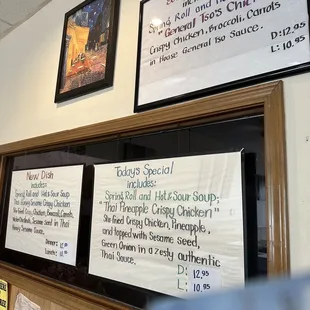 Spring Roll and H
General Tso's Chic
Crispy Chicken, Broccoli, Carrots
in House General Tso Sauce.
D: 12.95
L: 10.95
New Dish
includes:
Spring Roll and Hot & Sour Soup
Thai Honey Sesame Crispy Chicken
Honey Sesame Sauce.
Dinner: 12.95
Today's Special
includes:
Spring Roll and Hot & Sour Soup;
"Thai Pineapple Crispy Chicken"
Stir fried Crispy Chicken, Pineapple,
and topped with Sesame seed,
Green Onion in a zesty authentic
Thai Sauce.
D: 12.95
L: 10.95